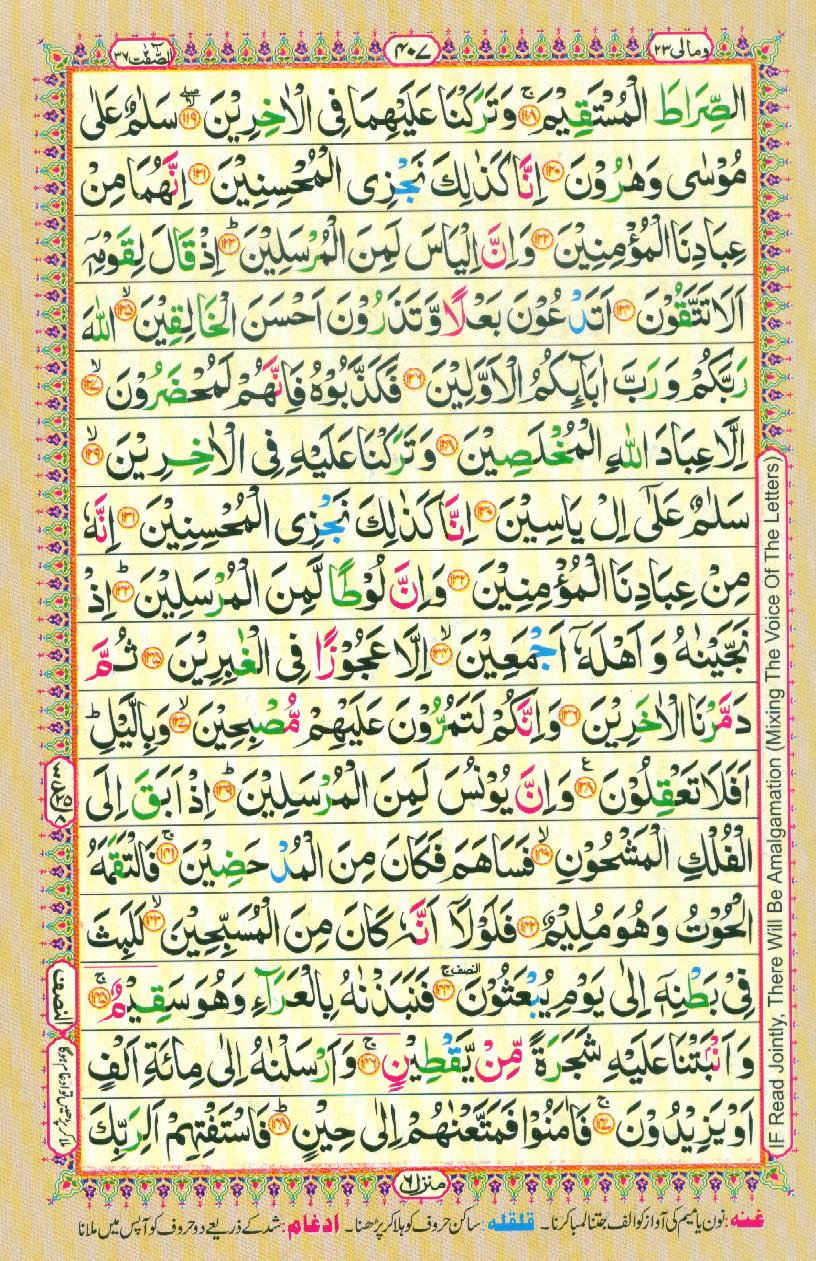 وما لى ٢٣
٤٠٧
الصّٰفّٰت ٣٧
الصِّرَاطَ الْمُسْتَقِيْمَ ۚ﴿۱۱۸﴾ وَ تَرَكْنَا عَلَيْهِمَا فِى الْاٰخِرِيْنَ ۙ﴿۱۱۹﴾ سَلٰمٌ عَلٰى
مُوْسٰى وَ هٰرُوْنَ ﴿۱۲۰﴾ اِنَّا كَذٰلِكَ نَجْزِى الْمُحْسِنِيْنَ ﴿۱۲۱﴾ اِنَّهُمَا مِنْ
عِبَادِنَا الْمُؤْمِنِيْنَ ﴿۱۲۲﴾ وَ اِنَّ اِلْيَاسَ لَمِنَ الْمُرْسَلِيْنَ ؕ﴿۱۲۳﴾ اِذْ قَالَ لِقَوْمِهٖۤ
اَلَا تَتَّقُوْنَ ﴿۱۲۴﴾ اَتَدْعُوْنَ بَعْلًا وَّ تَذَرُوْنَ اَحْسَنَ الْخَالِقِيْنَ ۙ﴿۱۲۵﴾ اللّٰهَ
رَبَّكُمْ وَ رَبَّ اٰبَآئِكُمُ الْاَوَّلِيْنَ ﴿۱۲۶﴾ فَكَذَّبُوْهُ فَاِنَّهُمْ لَمُحْضَرُوْنَ ۙ﴿۱۲۷﴾
اِلَّا عِبَادَ اللّٰهِ الْمُخْلَصِيْنَ ﴿۱۲۸﴾ وَ تَرَكْنَا عَلَيْهِ فِى الْاٰخِرِيْنَ ۙ﴿۱۲۹﴾
سَلٰمٌ عَلٰۤى اِلْ يَاسِيْنَ ﴿۱۳۰﴾ اِنَّا كَذٰلِكَ نَجْزِى الْمُحْسِنِيْنَ ﴿۱۳۱﴾ اِنَّهٗ
مِنْ عِبَادِنَا الْمُؤْمِنِيْنَ ﴿۱۳۲﴾ وَ اِنَّ لُوْطًا لَّمِنَ الْمُرْسَلِيْنَ ؕ﴿۱۳۳﴾ اِذْ
نَجَّيْنٰهُ وَ اَهْلَهٗۤ اَجْمَعِيْنَ ۙ﴿۱۳۴﴾ اِلَّا عَجُوْزًا فِى الْغٰبِرِيْنَ ﴿۱۳۵﴾ ثُمَّ
دَمَّرْنَا الْاٰخَرِيْنَ ﴿۱۳۶﴾ وَ اِنَّكُمْ لَتَمُرُّوْنَ عَلَيْهِمْ مُّصْبِحِيْنَ ۙ﴿۱۳۷﴾ وَ بِالَّيْلِ ؕ
اَفَلَا تَعْقِلُوْنَ ﴿۱۳۸﴾ وَ اِنَّ يُوْنُسَ لَمِنَ الْمُرْسَلِيْنَ ؕ﴿۱۳۹﴾ اِذْ اَبَقَ اِلَى
الْفُلْكِ الْمَشْحُوْنِ ۙ﴿۱۴۰﴾ فَسَاهَمَ فَكَانَ مِنَ الْمُدْحَضِيْنَ ۚ﴿۱۴۱﴾ فَالْتَقَمَهُ
الْحُوْتُ وَ هُوَ مُلِيْمٌ ﴿۱۴۲﴾ فَلَوْلَاۤ اَنَّهٗ كَانَ مِنَ الْمُسَبِّحِيْنَ ۙ﴿۱۴۳﴾ لَلَبِثَ
فِىْ بَطْنِهٖۤ اِلٰى يَوْمِ يُبْعَثُوْنَ ۚ﴿۱۴۴﴾ النصف فَنَبَذْنٰهُ بِالْعَرَآءِ وَ هُوَ سَقِيْمٌ ۚ﴿۱۴۵﴾
وَ اَنْۢبَتْنَا عَلَيْهِ شَجَرَةً مِّنْ يَّقْطِيْنٍ ۚ﴿۱۴۶﴾ وَ اَرْسَلْنٰهُ اِلٰى مِائَةِ اَلْفٍ
اَوْ يَزِيْدُوْنَ ۚ﴿۱۴۷﴾ فَاٰمَنُوْا فَمَتَّعْنٰهُمْ اِلٰى حِيْنٍ ؕ﴿۱۴۸﴾ فَاسْتَفْتِهِمْ اَلِرَبِّكَ
النصف
ملا کر پڑھیں تو ادغام ہوگا
IF Read Jointly, There Will Be Amalgamation (Mixing The Voice Of The Letters)
منزل ٦
غنه: نون یا میم کی آواز کو الف جتنا لمبا کرنا۔ قلقله: ساکن حروف کو ہلا کر پڑھنا۔ ادغام: شد کے ذریعے دو حروف کو آپس میں ملانا